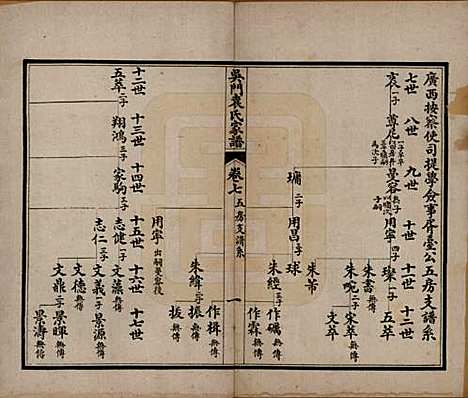 廣西按察使司提學僉事胥臺公五房支譜系
七世 八世 九世 十世 十一世 十二世
袠二子 尊尼 夢容 用寧四子 璨二子 五萃
朱書無傳
朱晼二子 宋萃無傳
文萃
朱芾
墉二子 用昌 球
朱經三子 作礪無傳
作霖無傳
朱緯三子 作楫無傳
振無傳
拔無傳
用寧出嗣夢容後
吳門袁氏家譜
卷七 五房支譜系
一
十二世 十三世 十四世 十五世 十六世 十七世
五萃二子 翔鴻三子 家駒三子 志健二子 文藻無傳
文義二子 景源無傳
志仁二子 文德無傳
文鼎二子 景暉無傳
景濤無傳